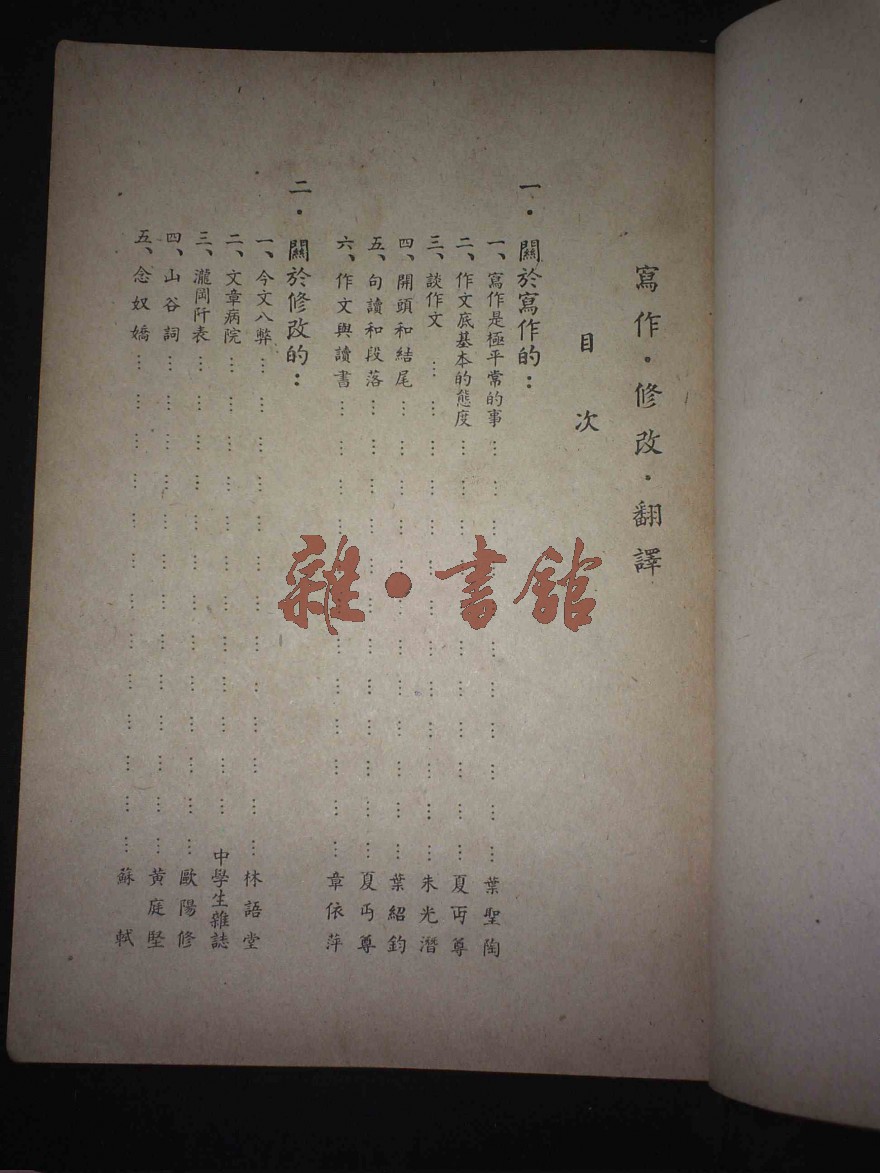 寫作·修改·翻譯
目次
一·關於寫作的：
一、寫作是極平常的事………………………葉聖陶
二、作文底基本的態度………………………夏丏尊
三、談作文………………………朱光潛
四、開頭和結尾………………………葉紹鈞
五、句讀和段落………………………夏丏尊
六、作文與讀書………………………章依萍
二·關於修改的：
一、今文八弊………………………林語堂
二、文章病院………………………中學生雜誌
三、瀧岡阡表………………………歐陽修
四、山谷詞………………………黃庭堅
五、念奴嬌………………………蘇軾
雜·書館